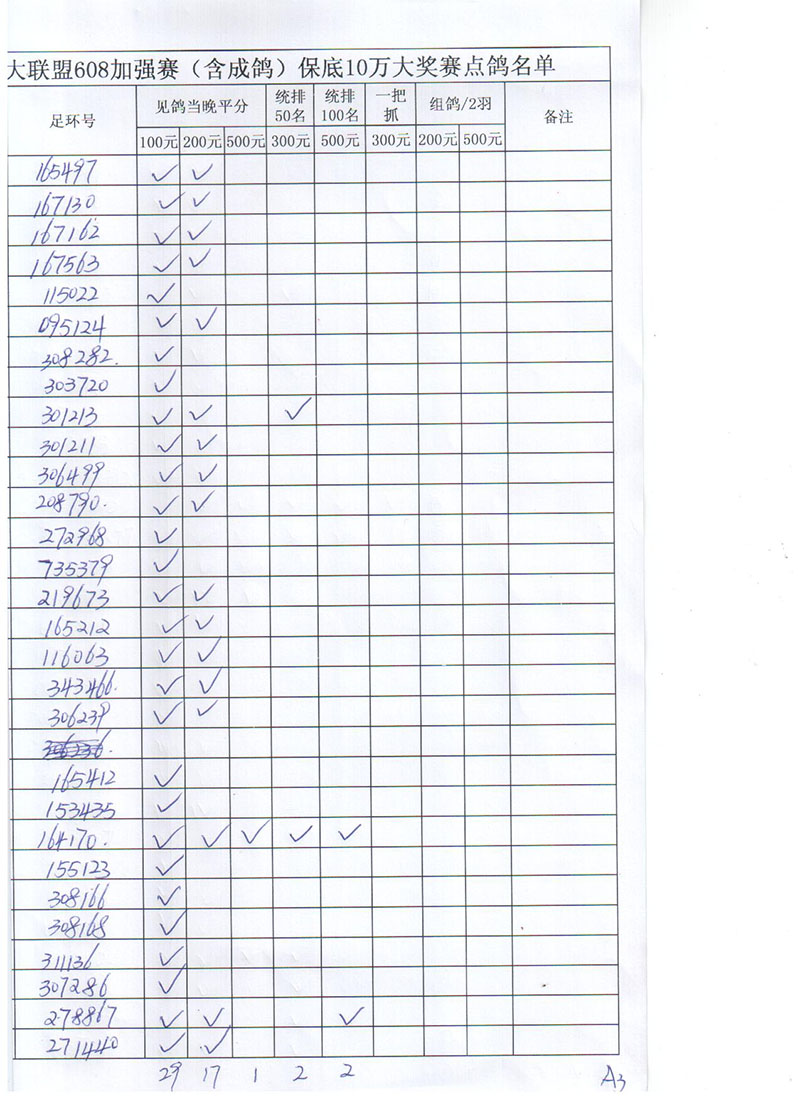 大联盟608加强赛（含成鸽）保底10万大奖赛点鸽名单
足环号 见鸽当晚平分 统排50名 统排100名 一把抓 组鸽/2羽 备注
100元 200元 500元 300元 500元 300元 200元 500元
165497 ✓ ✓
167130 ✓ ✓
167162 ✓ ✓
167563 ✓ ✓
115022 ✓
095124 ✓ ✓
308282. ✓
303720 ✓
301213 ✓ ✓ ✓
301211 ✓ ✓
306499 ✓ ✓
208790. ✓ ✓
272968 ✓
735379 ✓
219673 ✓ ✓
165212 ✓ ✓
116063 ✓ ✓
343466. ✓ ✓
306239 ✓ ✓
165412 ✓
153435 ✓
164170. ✓ ✓ ✓ ✓ ✓
155123 ✓
308166 ✓
308168 ✓
311136 ✓
307286 ✓
278867 ✓ ✓ ✓
271440 ✓ ✓
29 17 1 2 2 A3